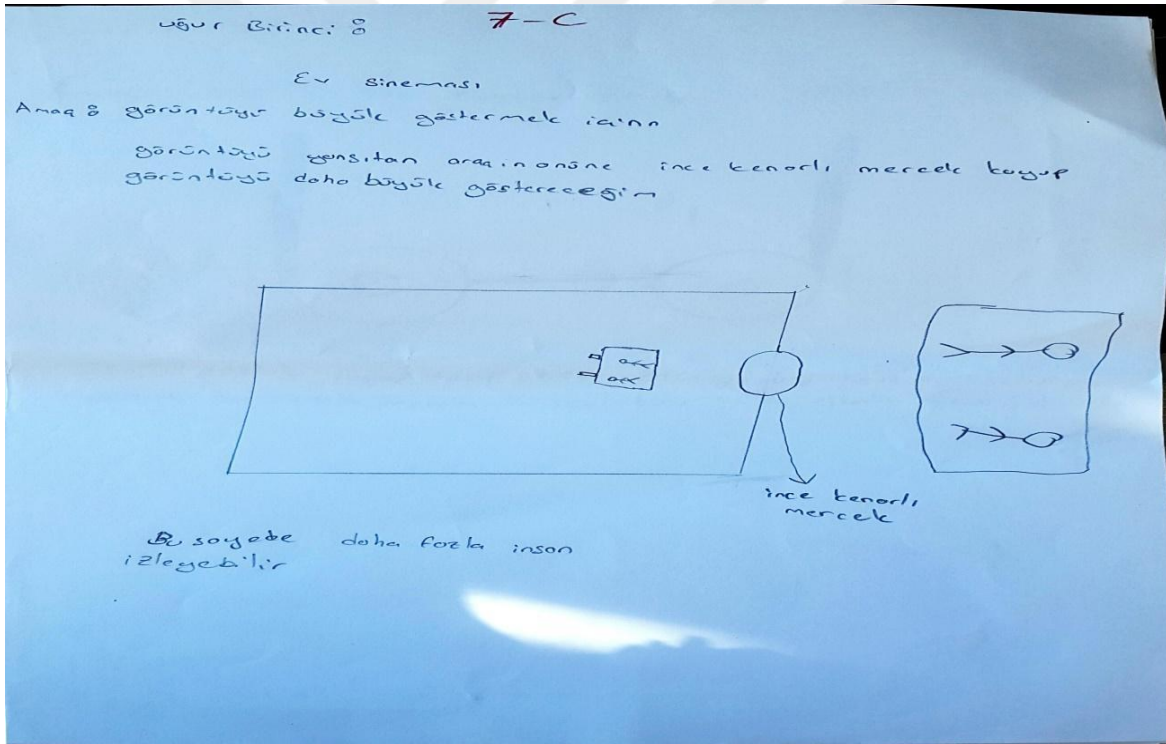 uğur Birinci :
7-C
Ev sineması
Amaç : görüntüyü büyük göstermek içinn
görüntüyü yansıtan aracın önüne ince kenarlı mercek koyup
görüntüyü daha büyük göstereceğim
ince kenarlı
mercek
Bu sayede daha fazla insan
izleyebilir